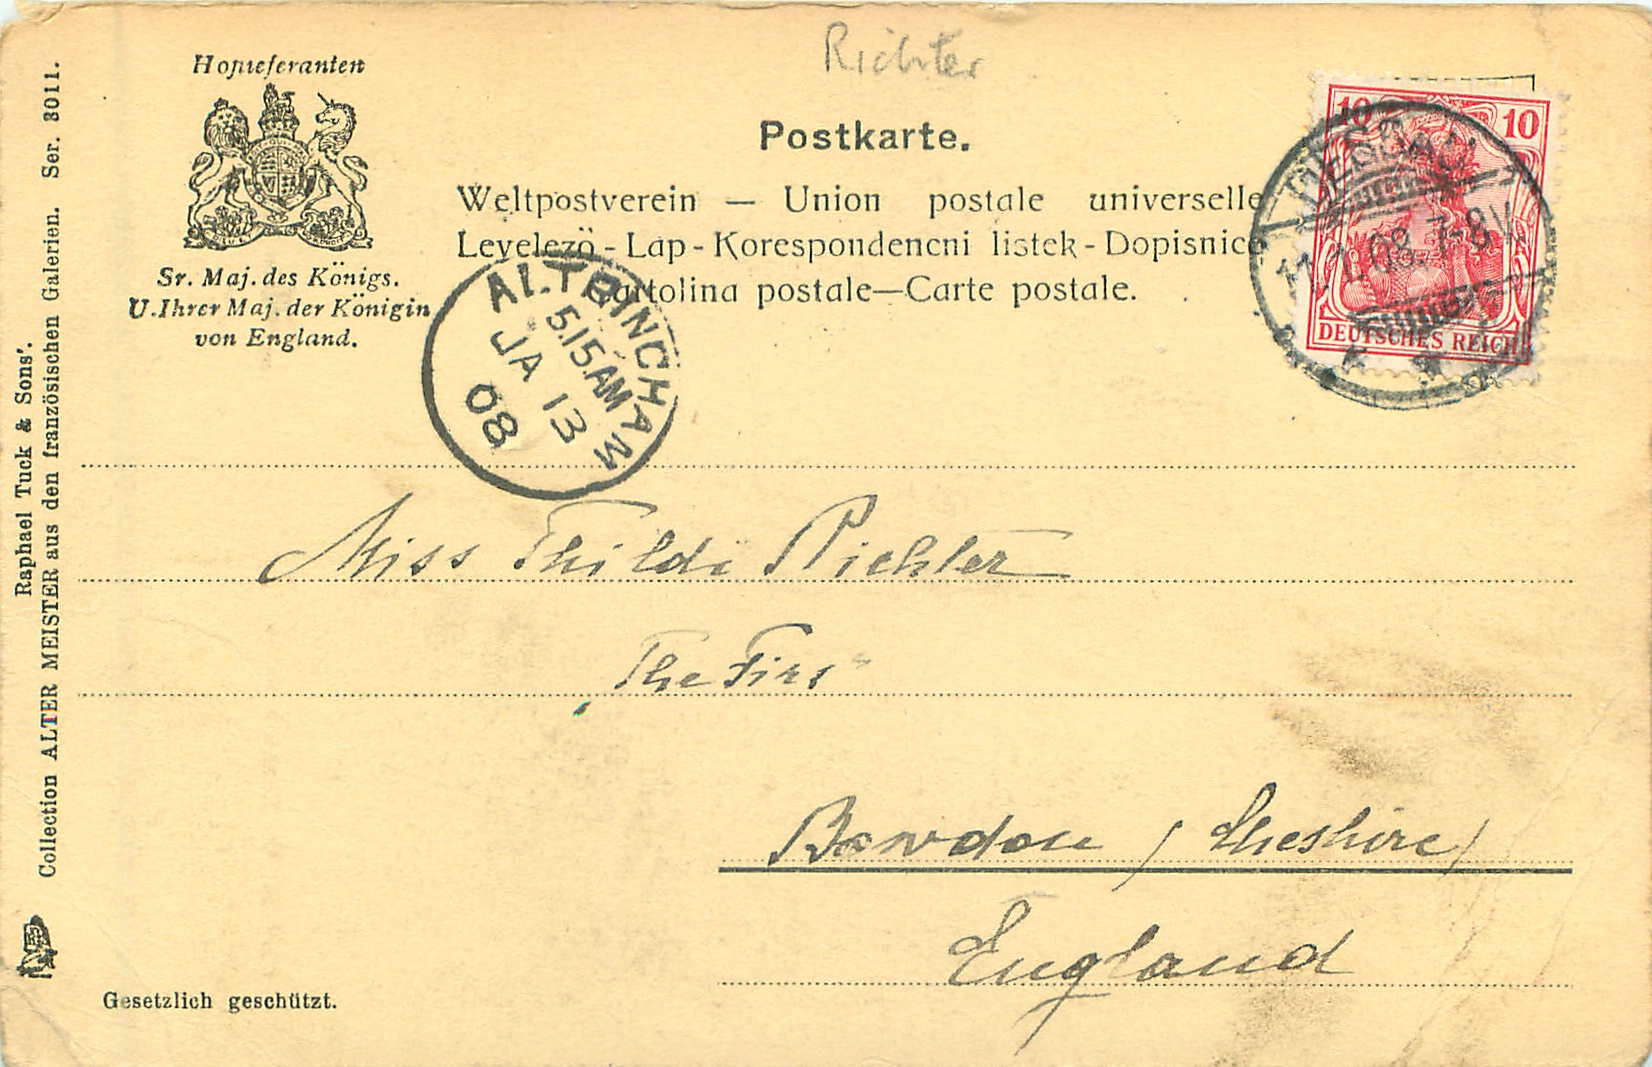 Richter
Hoflieferanten
Sr. Maj. des Königs.
U. Ihrer Maj. der Königin
von England.
Postkarte.
Weltpostverein — Union postale universelle
Levelező - Lap - Korespondencni listek - Dopisnice
Cartolina postale—Carte postale.
10 10
DEUTSCHES REICH
DESSAU
11.1.08. 7-8V.
ALTRINCHAM
5.15 AM
JA 13
08
Miss Thilde Richter
The Firs
Bowdon (Cheshire)
England
Raphael Tuck & Sons'.
Collection ALTER MEISTER aus den französischen Galerien. Ser. 3011.
Gesetzlich geschützt.